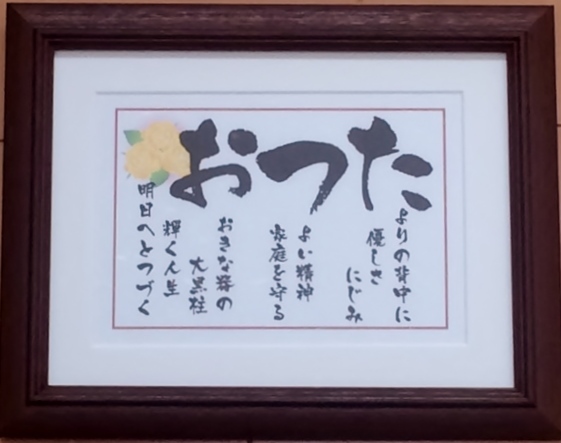 たつお
よりの背中に
優しさ
にじみ
よい精神
家庭を守る
おきな器の
大黒柱
輝く人生
明日へとつづく